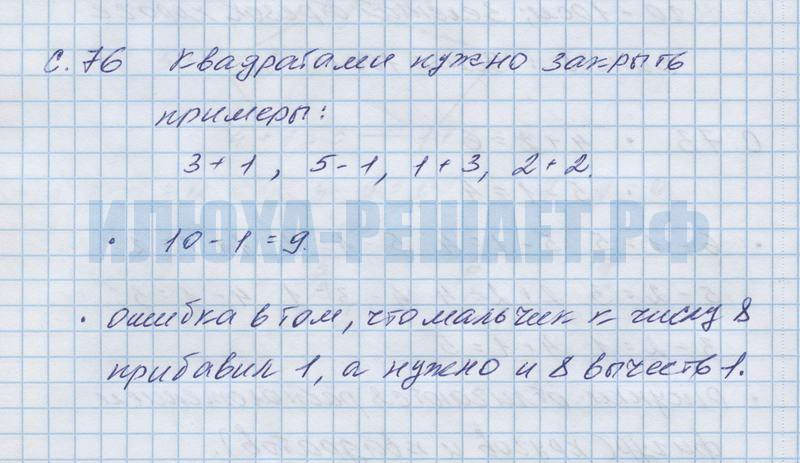 с. 76 Квадратами нужно закрыть
примеры:
3+1, 5-1, 1+3, 2+2.
ИЛЮХА-РЕШАЕТ.РФ
• 10-1=9.
• ошибка в том, что мальчик к числу 8
прибавил 1, а нужно и 8 вычесть 1.